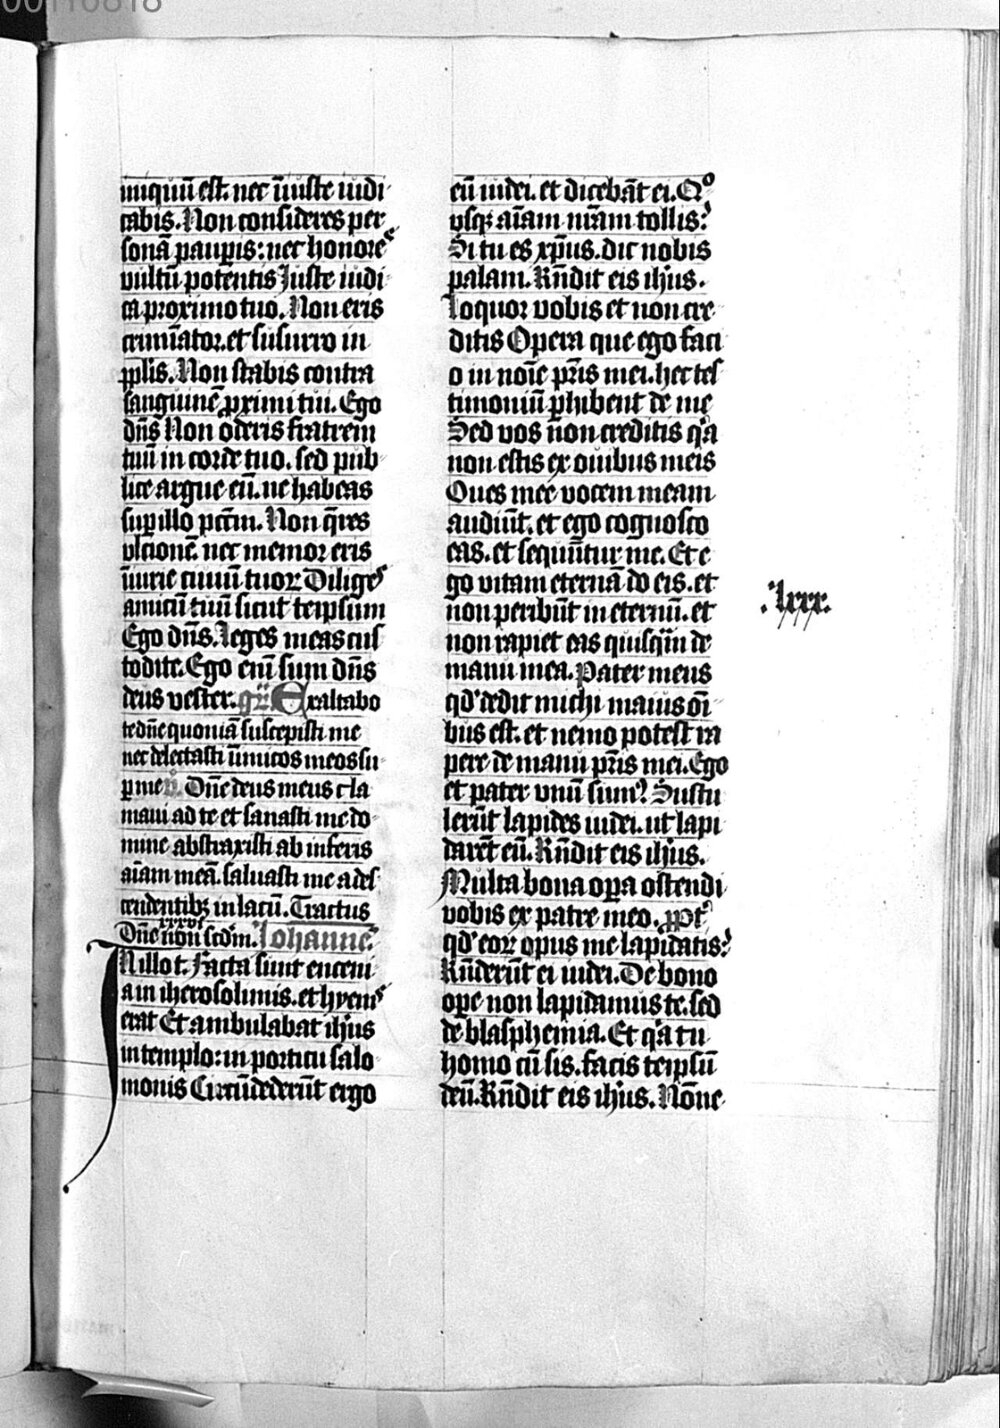 00110818
iniquū est. nec iīuste iudi
cabis. Non consideres per
sonā paupis: nec honorē
vultū potentis Iuste iudi
ca proximo tuo. Non eris
crimīator. et susurro in
pplis. Non stabis contra
sanguinē pximi tui. Ego
dn̄s Non oderis fratrem
tuū in corde tuo. sed pub
lice argue eū. ne habeas
sup illo pctm̄. Non q̄res
vlcionē. nec memor eris
iīurie ciuiū tuoꝝ Diliges
amicū tuū sicut teipsum
Ego dn̄s. Leges meas cus
todite. Ego eīn sum dn̄s
deus vester. gr̄. Exaltabo
te dn̄e quoniā suscepisti me
nec delectasti inīmicos meos su
p me v̊. Dn̄e deus meus cla
maui ad te et sanasti me do
mine abstraxisti ab inferis
aīam meā. saluasti me a des
cendentibꝫ in lacū. Tractus
xxxvi
Dn̄e non scd̄m. Iohannē
IN illo t. Facta sunt enceni
a in iherosolimis. et hyems
erat Et ambulabat ih̄us
in templo: in porticu salo
monis Circūdederūt ergo
eū iudei. et dicebāt ei. Qo
vsqꝫ aīam nr̄am tollis?
Si tu es xp̄us. dic nobis
palam. Rn̄dit eis ih̄us.
Loquor vobis et non cre
ditis Opera que ego faci
o in noīe pr̄is mei. hec tes
timoniū phibent de me
Sed vos non creditis q̇a
non estis ex ouibus meis
Oues mee vocem meam
audiūt. et ego cognosco
eas. et sequūtur me. Et e
go vitam eternā do eis. et
non peribūt in eternū. et
non rapiet eas quisq̄m de
manu mea. Pater meus
qd' dedit michi maius oī
bus est. et nemo potest ra
pere de manu pr̄is mei. Ego
et pater vnū sum? Sustu
lerūt lapides iudei. ut lapi
darēt eū. Rn̄dit eis ih̄us.
Multa bona opa ostendi
vobis ex patre meo. ppt'
qd' eoꝝ opus me lapidatis?
Rn̄derūt ei iudei. De bono
ope non lapidamus te. sed
de blasphemia. Et q̇a tu
homo cū sis. facis teipsū
deū. Rn̄dit eis ih̄us. Nōne
.lxxx.